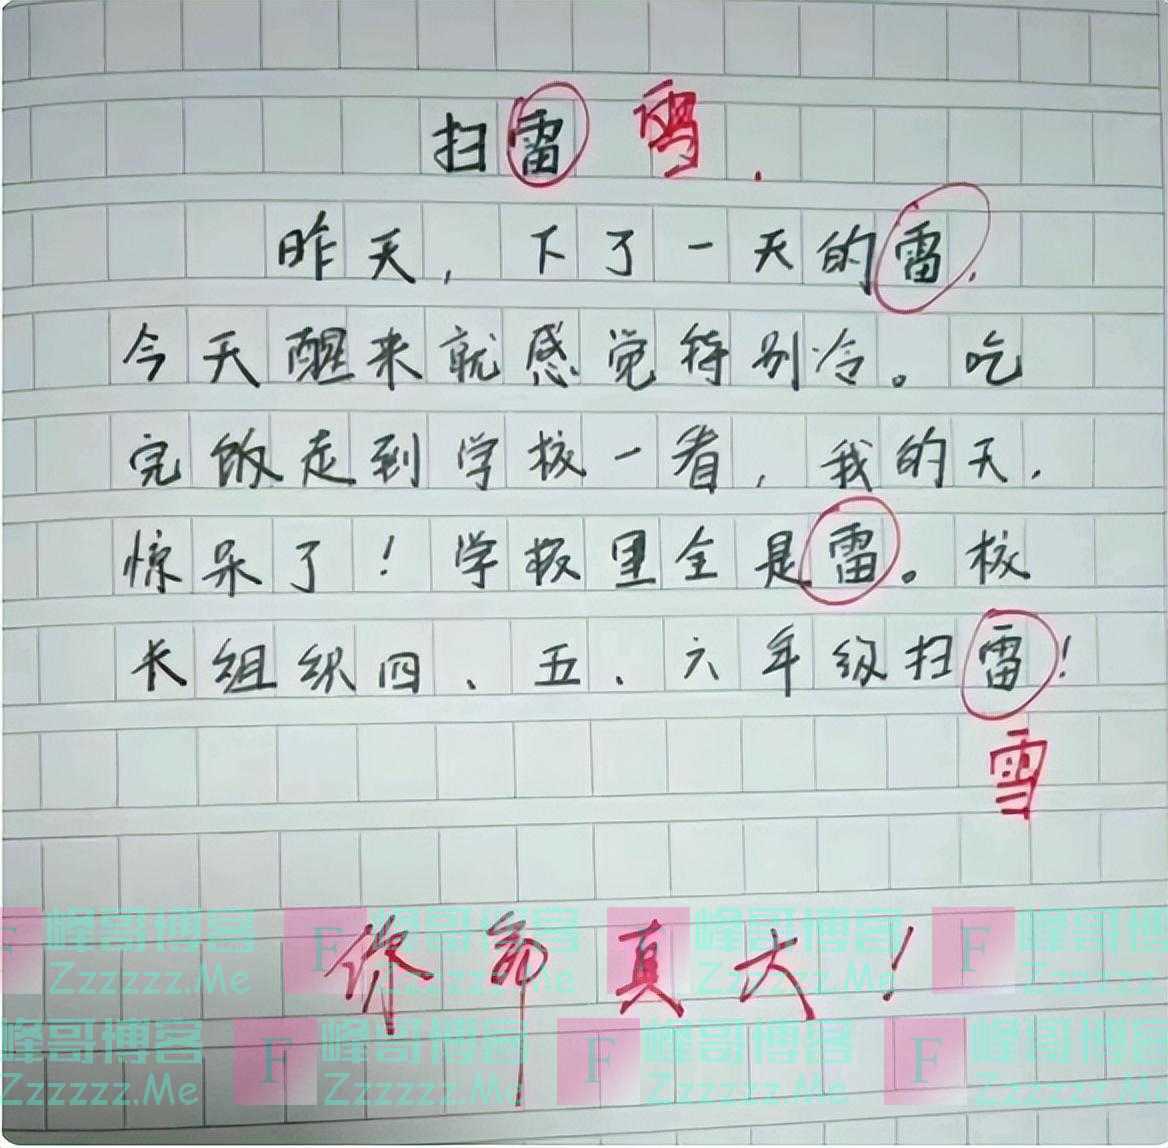 扫雷 雪.
昨天，下了一天的雷，
今天醒来就感觉特别冷。吃
完饭走到学校一看，我的天，
惊呆了！学校里全是雷。校
长组织四、五、六年级扫雷！
雪
你命真大！
峰哥博客 峰哥博客 峰哥博客 峰哥博
Zzzzzz.Me Zzzzzz.Me Zzzzzz.Me Zzzzzz
峰哥博客 F 峰哥博客 F 峰哥博客 F 峰哥博客
Zzzzzz.Me Zzzzzz.Me Zzzzzz.Me Zzzzzz.Me